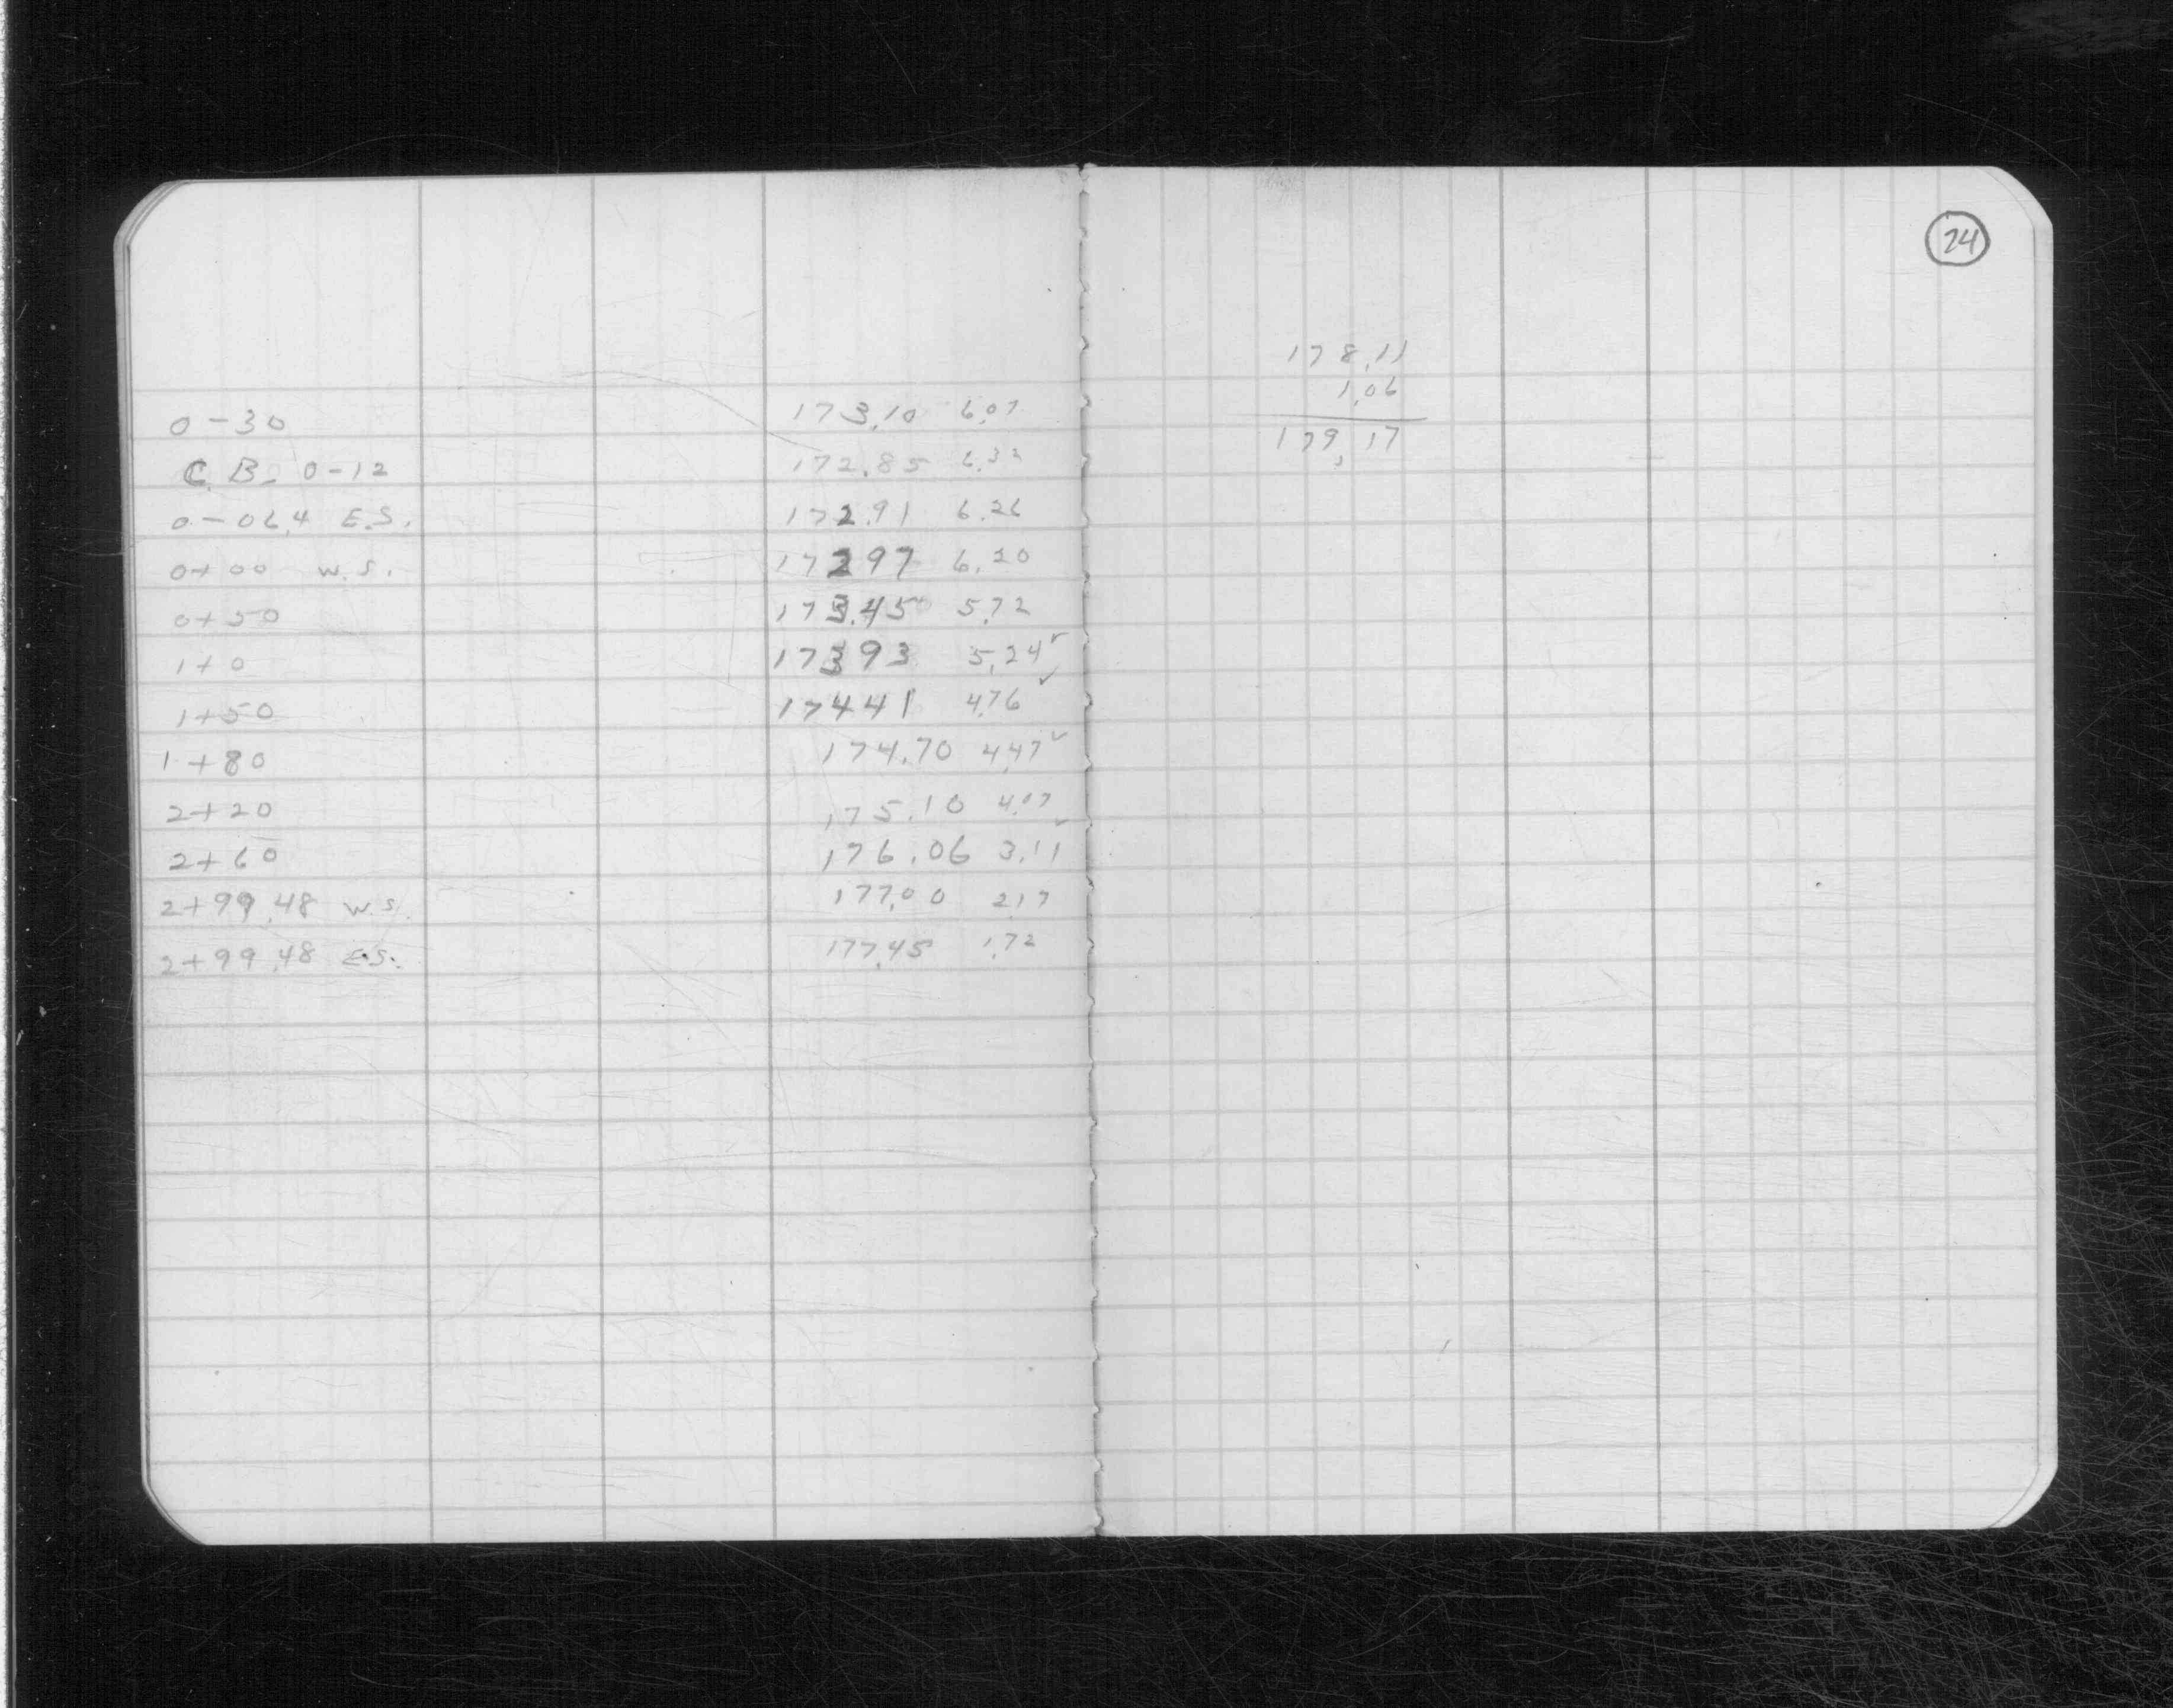 24
178.11
1.06
179.17
0-30 173.10 6.07
C.B. 0-12 172.85 6.32
0-06.4 E.S. 172.91 6.26
0+00 W.S. 17297 6.20
0+50 173.45 5.72
1+0 17393 5.24✓
1+50 17441 4.76✓
1+80 174.70 4.47✓
2+20 175.10 4.07
2+60 176.06 3.11✓
2+99.48 W.S. 177.00 2.17
2+99.48 E.S. 177.45 1.72